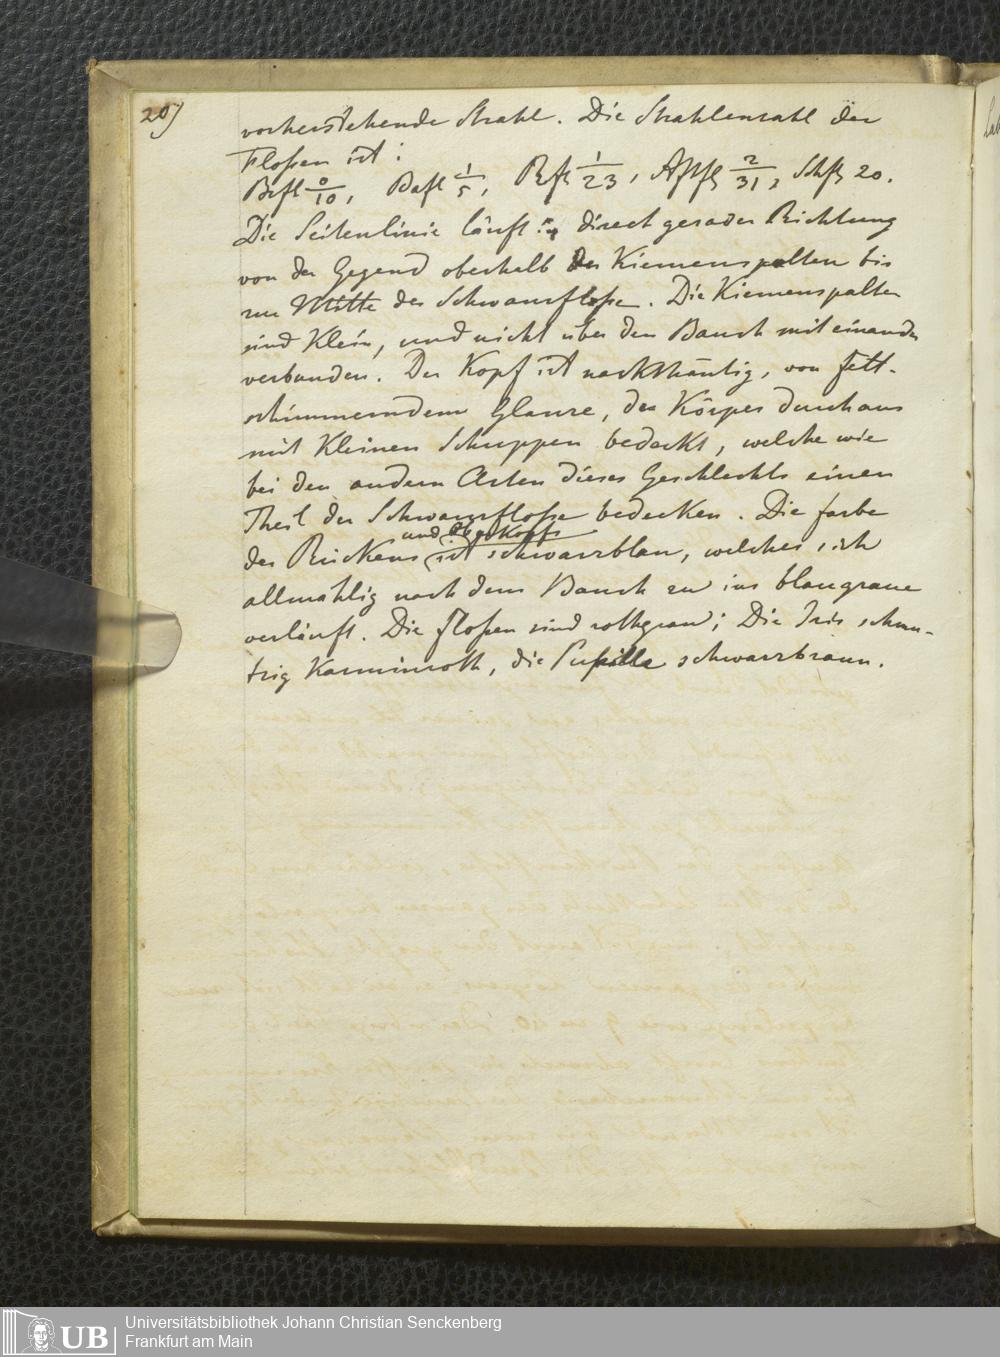 20)
vorherstehende Strahl. Die Strahlenzahl der
Floßen ist:
Brfl 0/10, Bafl 1/5, Rfl 1/23, Aftfl 2/31, Schfl 20.
Die Seitenlinie läuft in direct gerader Richtung
von der Gegend oberhalb der Kiemenspalten bis
zur Mitte der Schwanzfloße. Die Kiemenspalten
sind Klein, und nicht über den Bauch mit einander
verbunden. Der Kopf ist nackthäutig, von fett-
schimmerndem Glanze, der Körper durchaus
mit Kleinen Schuppen bedeckt, welche wie
bei den andern Arten dieses Geschlechts einen
Theil der Schwanzfloße bedecken. Die farbe
und Oberkopfs
des Rückens ist schwarzblau, welches sich
allmählig nach dem Bauch zu ins blaugraue
verläuft. Die floßen sind rothgrau; Die Iris schmu-
tzig Karminroth, die Pupille schwarzbraun.
UB
Universitätsbibliothek Johann Christian Senckenberg
Frankfurt am Main